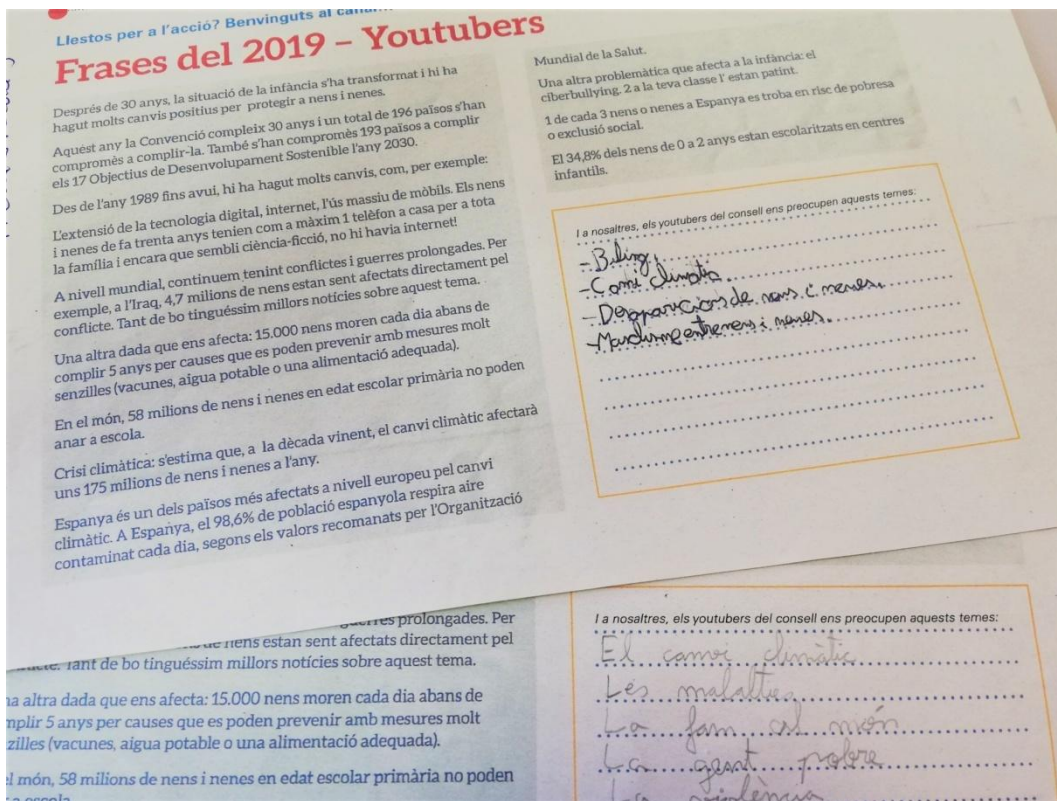 Llestos per a l'acció? Benvinguts al
Frases del 2019 – Youtubers
Després de 30 anys, la situació de la infància s'ha transformat i hi ha
hagut molts canvis positius per protegir a nens i nenes.
Aquést any la Convenció compleix 30 anys i un total de 196 països s'han
compromès a complir-la. També s'han compromès 193 països a complir
els 17 Objectius de Desenvolupament Sostenible l'any 2030.
Des de l'any 1989 fins avui, hi ha hagut molts canvis, com, per exemple:
L'extensió de la tecnologia digital, internet, l'ús massiu de mòbils. Els nens
i nenes de fa trenta anys tenien com a màxim 1 telèfon a casa per a tota
la família i encara que sembli ciència-ficció, no hi havia internet!
A nivell mundial, continuem tenint conflictes i guerres prolongades. Per
exemple, a l'Iraq, 4,7 milions de nens estan sent afectats directament pel
conflicte. Tant de bo tinguéssim millors notícies sobre aquest tema.
Una altra dada que ens afecta: 15.000 nens moren cada dia abans de
complir 5 anys per causes que es poden prevenir amb mesures molt
senzilles (vacunes, aigua potable o una alimentació adequada).
En el món, 58 milions de nens i nenes en edat escolar primària no poden
anar a escola.
Crisi climàtica: s'estima que, a la dècada vinent, el canvi climàtic afectarà
uns 175 milions de nens i nenes a l'any.
Espanya és un dels països més afectats a nivell europeu pel canvi
climàtic. A Espanya, el 98,6% de població espanyola respira aire
contaminat cada dia, segons els valors recomanats per l'Organització
Mundial de la Salut.
Una altra problemàtica que afecta a la infància: el
ciberbullying. 2 a la teva classe l' estan patint.
1 de cada 3 nens o nenes a Espanya es troba en risc de pobresa
o exclusió social.
El 34,8% dels nens de 0 a 2 anys estan escolaritzats en centres
infantils.
I a nosaltres, els youtubers del consell ens preocupen aquests temes:
- Biling
- Cami climatic
- Desaparicions de nens i nenes.
- Masclisme entre nens i nenes.
guerres prolongades. Per
de nens estan sent afectats directament pel
Tant de bo tinguéssim millors notícies sobre aquest tema.
na altra dada que ens afecta: 15.000 nens moren cada dia abans de
mplir 5 anys per causes que es poden prevenir amb mesures molt
zilles (vacunes, aigua potable o una alimentació adequada).
el món, 58 milions de nens i nenes en edat escolar primària no poden
a escola
I a nosaltres, els youtubers del consell ens preocupen aquests temes:
El canvi climàtic
Les malalties
La fam al món
La gent pobre
La violència